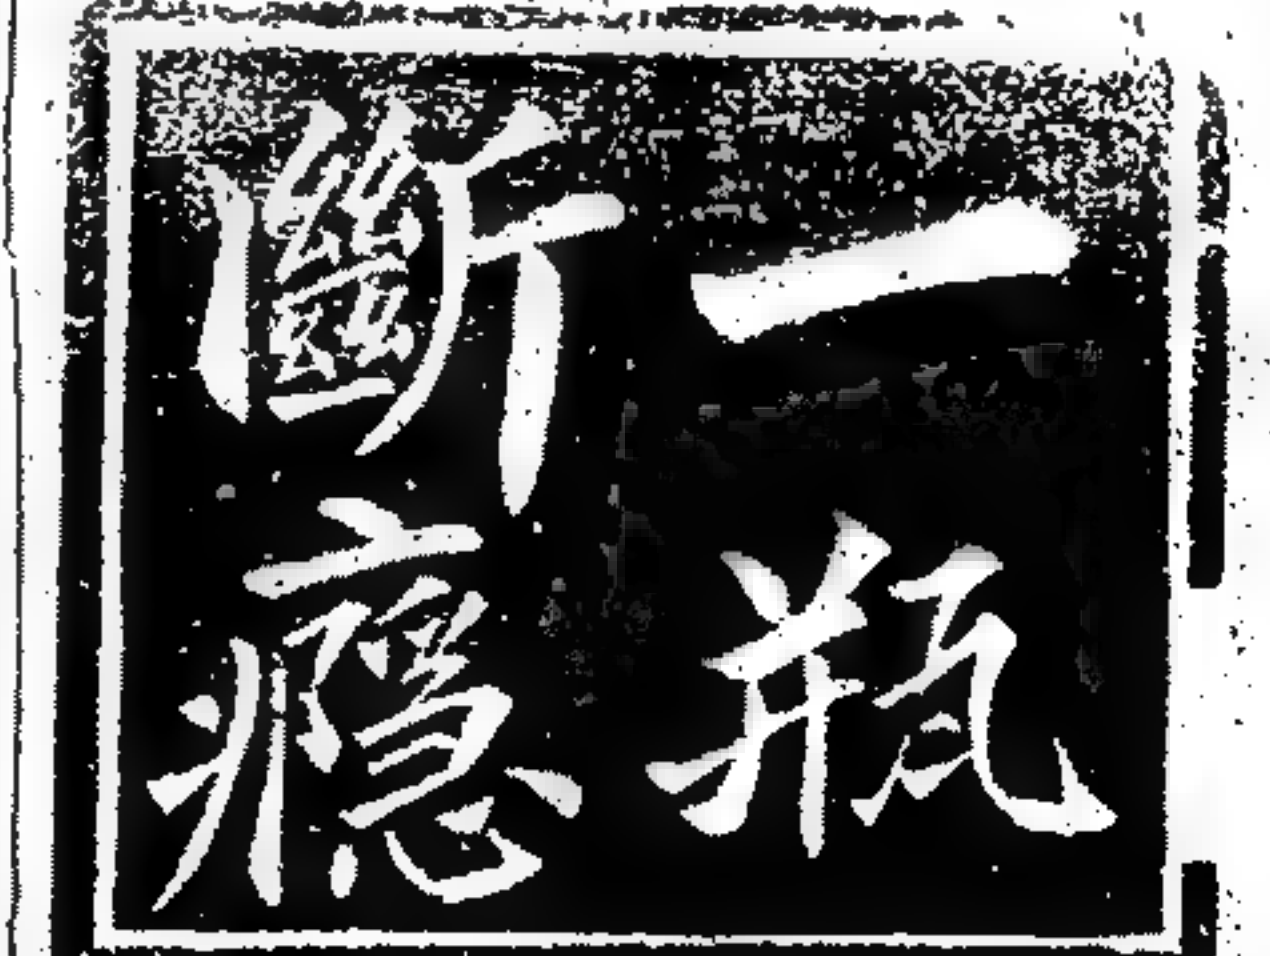 一瓶
斷癮